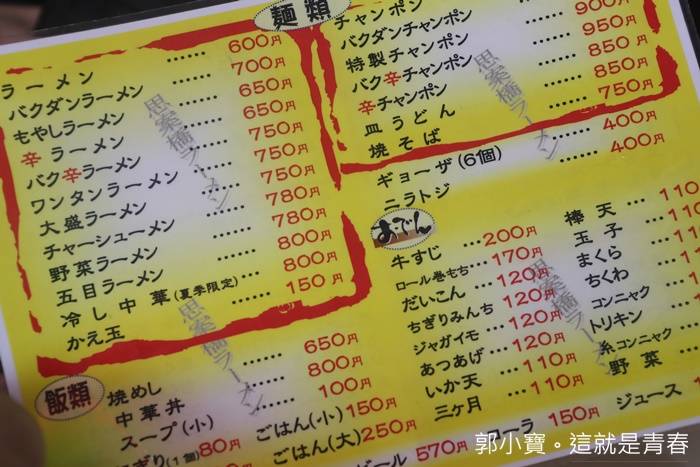 麺類
ラーメン …… 600円
バクダンラーメン 700円
もやしラーメン 650円
辛ラーメン 650円
バク辛ラーメン 750円
ワンタンラーメン 750円
大盛ラーメン 750円
チャーシューメン 780円
野菜ラーメン 780円
五目ラーメン 800円
冷し中華(夏季限定) 800円
かえ玉 …… 150円
思案橋ラーメン
思案橋ラーメン
チャンポン
バクダンチャンポン 900円
特製チャンポン 950円
バク辛チャンポン 950円
辛チャンポン 850円
皿うどん 850円
焼そば …… 750円
思案橋ラーメン
ギョーザ(6個) …… 400円
ニラトジ …… 400円
おでん
牛すじ …200円
ロール巻もち…170円
だいこん …120円
ちぎりみんち…120円
ジャガイモ …120円
あつあげ …120円
いか天 …110円
三ヶ月 …110円
思案橋ラーメン
棒天 … 110
玉子 … 110
まくら … 11
ちくわ
コンニャク
トリキン
糸コンニャク
野菜
飯類
焼めし …… 650円
中華丼 …… 800円
スープ(小) …… 100円
ぎり(1個)80円
ごはん(小)150円
ごはん(大)250円
ビール 570円
コーラ 150円
ジュース
郭小寶。這就是青春